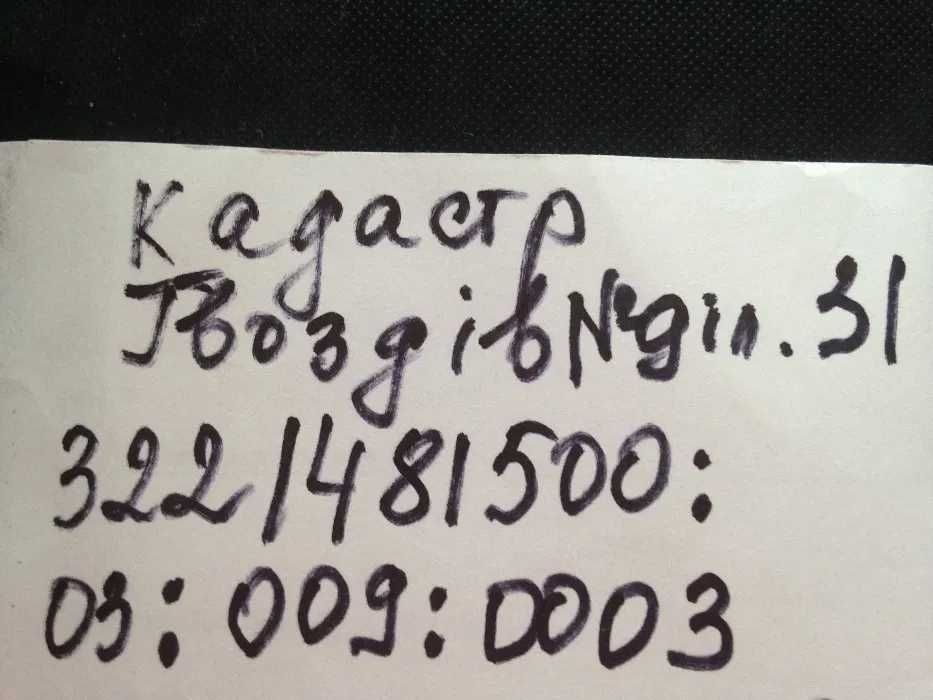 Кадастр
Гвоздів № діл. 31
3221481500:
03:009:0003